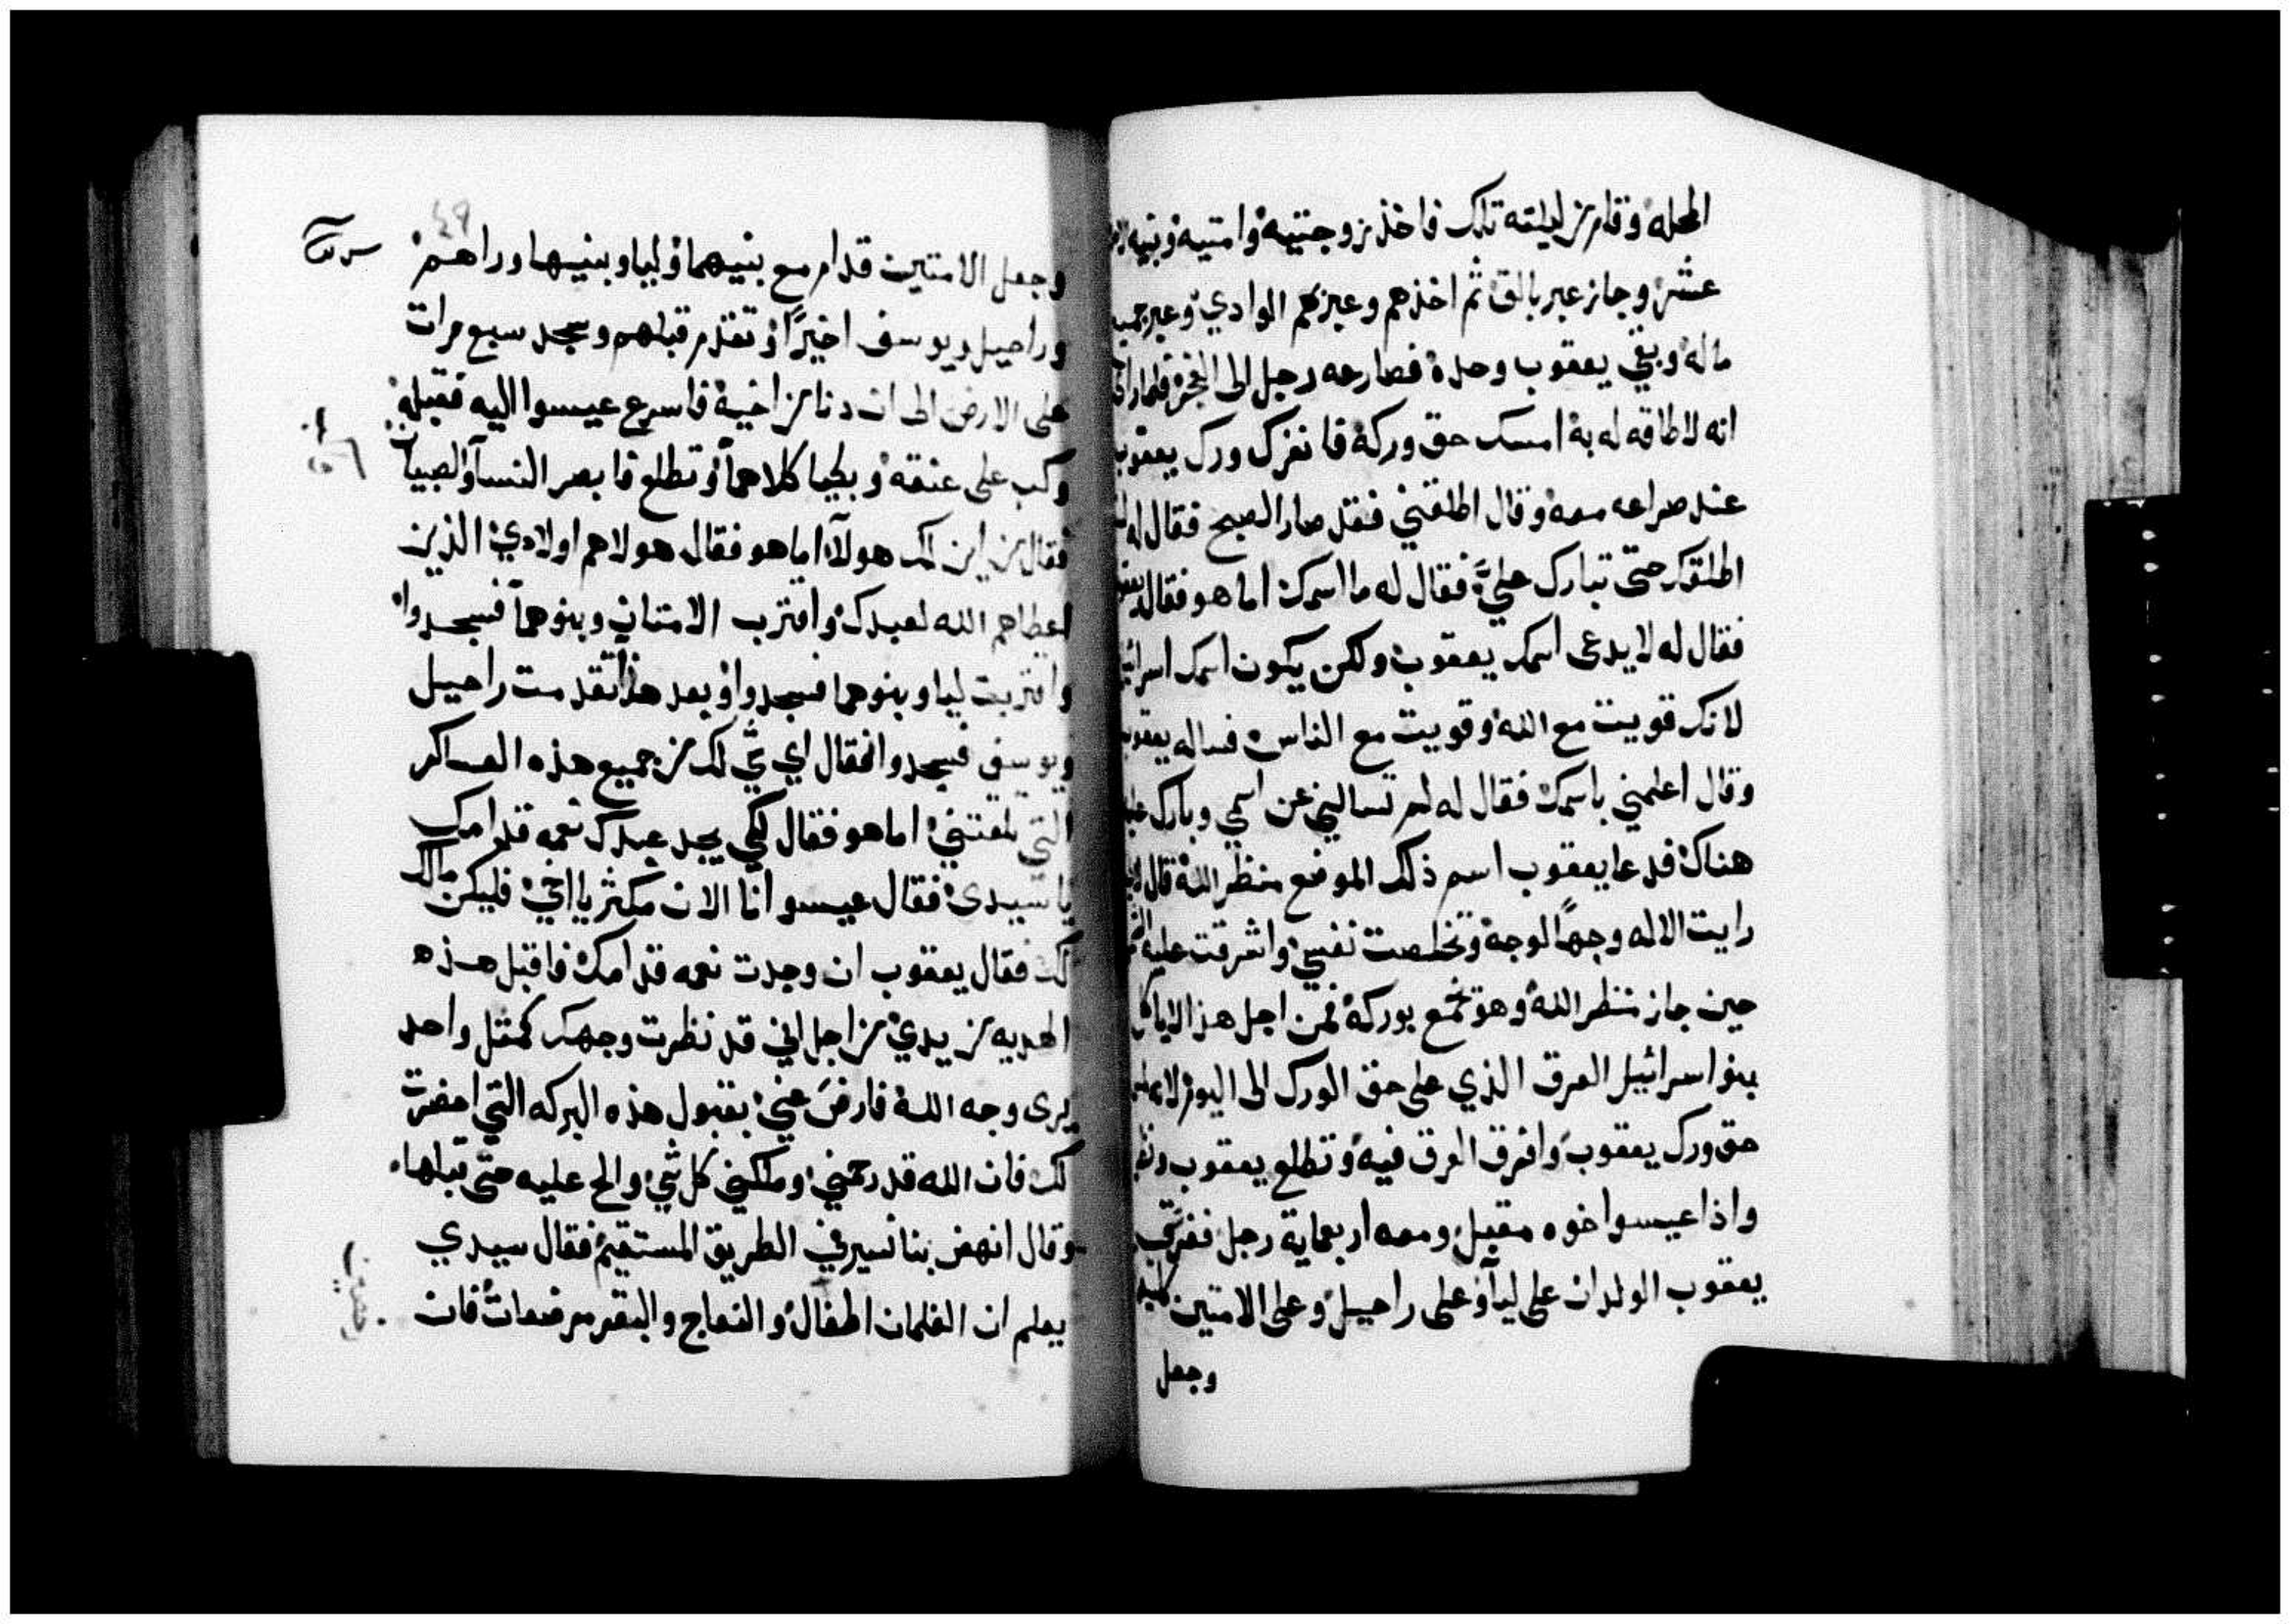 المحله وقام من ليلته تلك فاخذ زوجتيه وامتيه وبنيه
عشر وجاز عبر بالق ثم اخذهم وعبر بهم الوادي وعبر جميع
ماله وبقي يعقوب وحده فصارعه رجل الى الفجر فلما راى
انه لا طاقه له به امسك حق وركه فانفرك ورك يعقوب
عند صراعه معه وقال اطلقني فقد صار الصبح فقال له
اطلقك حتى تبارك علي فقال له ما اسمك اما هو فقال
فقال له لا يدعى اسمك يعقوب ولكن يكون اسمك اسرائيل
لانك قويت مع الله وقويت مع الناس فساله يعقوب
وقال اعلمني باسمك فقال له لم تسالني عن اسمي وبارك عليه
هناك فدعا يعقوب اسم ذلك الموضع منظر الله قال
رايت الاله وجهاً لوجه وتخلصت نفسي واشرقت عليه
حين جاز منظر الله وهو تخمع بوركه فمن اجل هذا لا ياكل
بنو اسرائيل العرق الذي على حق الورك الى اليوم
حق ورك يعقوب وافرق العرق فيه وتطلع يعقوب
واذا عيسوا اخوه مقبل ومعه اربعماية رجل ففرق
يعقوب الولدان على ليا وعلى راحيل وعلى الامتين
وجعل
٤٩
وجعل الامتين قدام مع بنيهما وليا وبنيها وراهم
وراحيل ويوسف اخيراً وتقدم قبلهم وسجد سبع مرات
على الارض الى ان دنا من اخيه فاسرع عيسوا اليه فقبله
وكب على عنقه وبكيا كلاهما وتطلع فابصر النسا والصبيان
فقال من اين لك هولآء اما هو فقال هولاهم اولادي الذين
اعطاهم الله لعبدك واقترب الامتان وبنوهما فسجدوا
واقتربت ليا وبنوهما فسجدوا وبعد هذا تقدمت راحيل
ويوسف فسجدوا فقال اي شي لك من جميع هذه العساكر
التي تلقتني اما هو فقال لكي يجد عبدك نعمه قدامك
يا سيدي فقال عيسوا انا الان مكثر يا اخي فليكن مالك
لك فقال يعقوب ان وجدت نعمه قدامك فاقبل هذه
الهديه من يدي من اجل اني قد نظرت وجهك كمثل واحد
يرى وجه الله فارض عني بقبول هذه البركه التي احضرت
لك فان الله قد رحمني وملكني كل شي والح عليه حتى قبلها
وقال انهض بنا نسير في الطريق المستقيم فقال سيدي
يعلم ان الغلمان اطفال والنعاج والبقر مرضعات فان